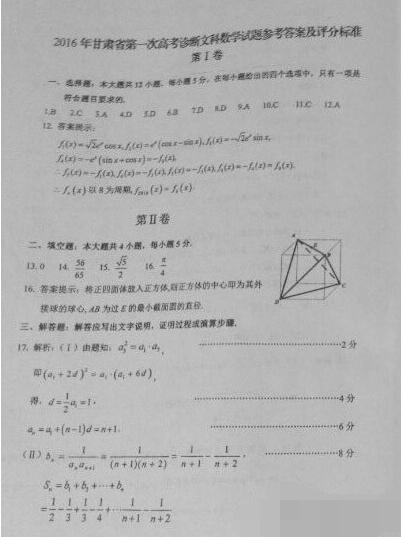 2016年甘肃省第一次高考诊断文科数学试题参考答案及评分标准
第Ⅰ卷
一、选择题：本大题共12小题，每小题5分，在每小题给出的四个选项中，只有一项是
符合题目要求的.
1.B 2.C 3.A 4.D 5.D 6.B 7.D 8.D 9.A 10.C 11.C 12.A
12. 答案提示：
f₁(x)=√2eˣcos x, f₁(x)=eˣ(cos x−sin x), f₃(x)=−√2eˣsin x,
f₄(x)=−eˣ(sin x+cos x)=−f₀(x),
第Ⅱ卷
二、填空题：本大题共4小题，每小题5分.
13. 0 14. 56/65 15. √5/2 16. π/4
16. 答案提示：将正四面体放入正方体,则正方体的中心即为其外
接球的球心, AB为过E的最小截面圆的直径.
A
E
B
C
D
三、解答题：解答应写出文字说明，证明过程或演算步骤.
17. 解析：(Ⅰ) 由题知：a₃²=a₁·a₇, ……2分
即(a₁+2d)²=a₁·(a₁+6d),
得：d=1/2a₁=1, ……4分
aₙ=a₁+(n−1)d=n+1. ……6分
(Ⅱ) bₙ=1/(aₙaₙ₊₁)=1/((n+1)(n+2))=1/(n+1)−1/(n+2), ……8分
Sₙ=b₁+b₂+⋯+bₙ
=1/2−1/3+1/3−1/4+⋯1/(n+1)−1/(n+2)